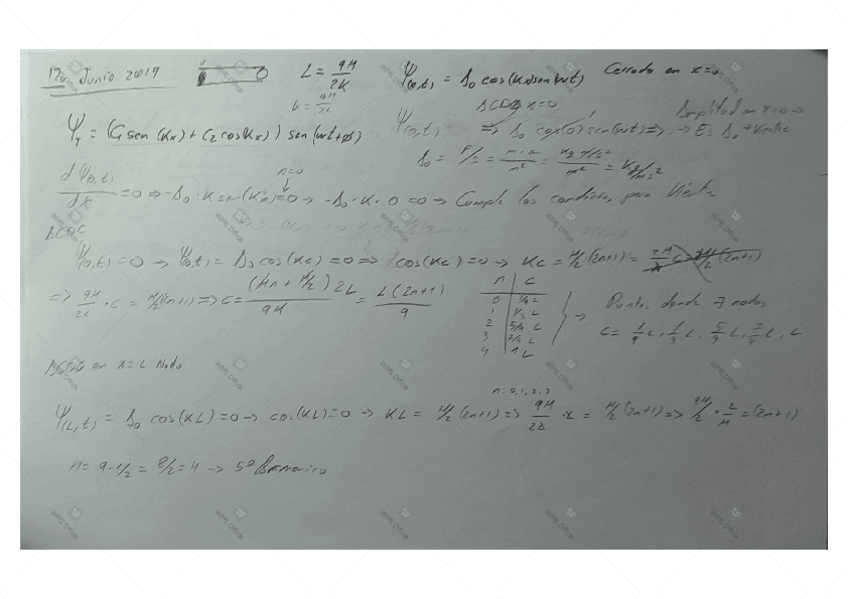 Junio 2019
L = 9π/2K
K = 9π/2L
Ψ(0,t) = Δ₀ cos(Kx) sen(ωt) Cerrado en x=0
Ψ_T = (C₁ sen(Kx) + C₂ cos(Kx)) sen(ωt+ø)
Ψ(0,t) ⇒ Δ₀ cos(0) sen(ωt) ⇒ → Es Δ₀ → Vientre
Amplitud en x=0 →
Δ₀ = F/S = m·a/m² = Kg m/s²/m² = Kg/ms²
n=0
dΨ(0,t)/dx = 0 ⇒ -Δ₀·K sen(Kx)=0 → -Δ₀·K·0 = 0 → Cumple las condiciones para Vientre
Ψ(0,t) = 0 → Ψ(0,t) = Δ₀ cos(Kc) = 0 ⇒ cos(Kc) = 0 → Kc = π/2(2n+1) =
⇒ 9π/2L · c = π/2(2n+1) ⇒ c = (πn + π/2) 2L/9π = L(2n+1)/9
n | c
0 | 1/9 L
1 | 1/3 L
2 | 5/9 L
3 | 7/9 L
4 | L
→ Puntos donde nodos
c = 1/9 L, 1/3 L, 5/9 L, 7/9 L, L
en x=L Nodo
n=0,1,2,3
Ψ(L,t) = Δ₀ cos(KL) = 0 → cos(KL) = 0 → KL = π/2(2n+1) ⇒ 9π/2L · x = π/2(2n+1) ⇒ 9π/2 · 2/π = (2n+1)
n = 9-1/2 = 8/2 = 4 → 5º Armonico
WPS Office